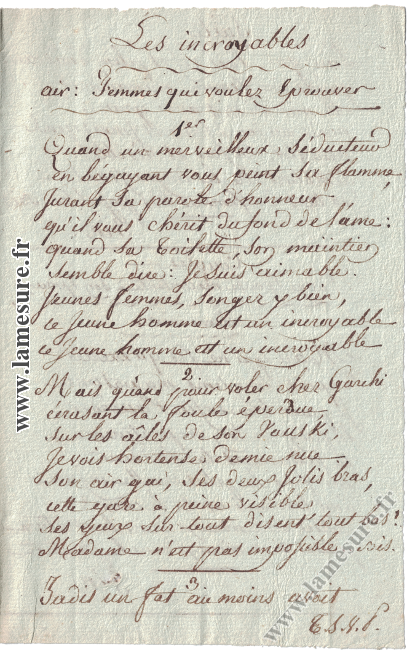 Les incroyables
air: Femmes qui voulez Eprouver
1er
Quand un merveilleux Séducteur
en bégayant vous peint sa flamme
Jurant sa parole d'honneur
qu'il vous chérit du fond de l'ame:
quand sa toilette, son maintien
semble dire: Je suis aimable.
Jeunes femmes, songez y bien,
ce jeune homme est un incroyable
ce jeune homme est un incroyable
2
Mais quand pour voler chez Garchi
écrasant la foule éperdue
sur les aîles de son
Je vois hortense demie nue
Son air gai, ses deux jolis bras,
cette gaze à peine visible
ses yeux sur-tout disent tout bas:
Madame n'est pas impossible bis.
3
Jadis un fat au moins avoit
T.S.V.P.
www.lamesure.fr
www.lamesure.fr